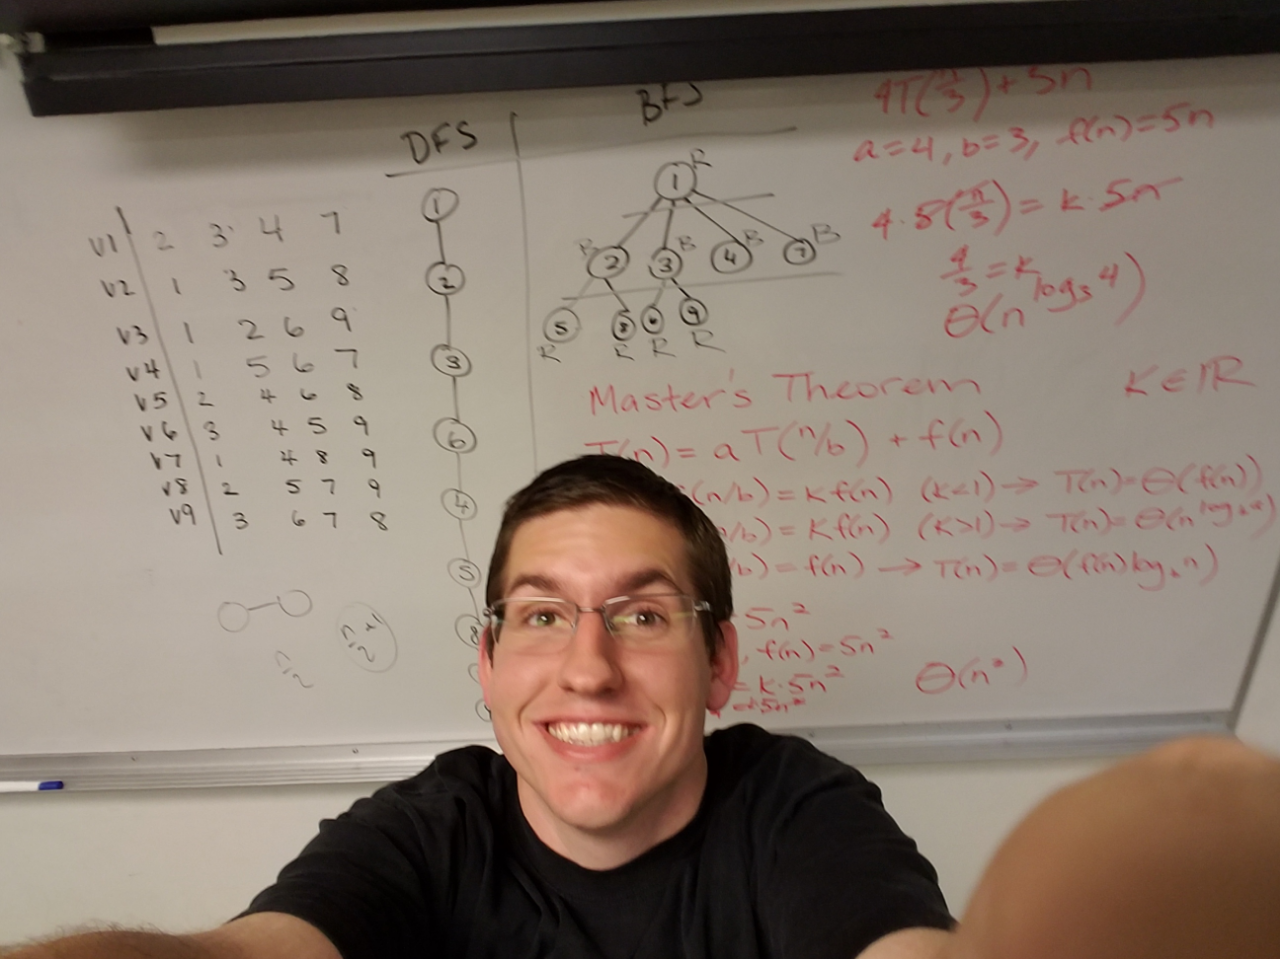 DFS
BFS
V1 2 3 4 7
V2 1 3 5 8
V3 1 2 6 9
V4 1 5 6 7
V5 2 4 6 8
V6 3 4 5 9
V7 1 4 8 9
V8 2 5 7 9
V9 3 6 7 8
1
2
3
6
4
5
8
1 R
B 2 3 B 4 B 7 B
5 8 6 9
R R R R
4T(n/3) + 5n
a=4, b=3, f(n)=5n
4·5(n/3) = k·5n
4/3 = k
Θ(n^log₃4)
Master's Theorem K∈ℝ
T(n) = aT(n/b) + f(n)
(n/b) = Kf(n) (K<1) → T(n)=Θ(f(n))
/b) = Kf(n) (K>1) → T(n)=Θ(n^log
/b) = f(n) → T(n)=Θ(f(n)log_b n)
5n²
, f(n)=5n²
= k·5n² Θ(n²)
n-2